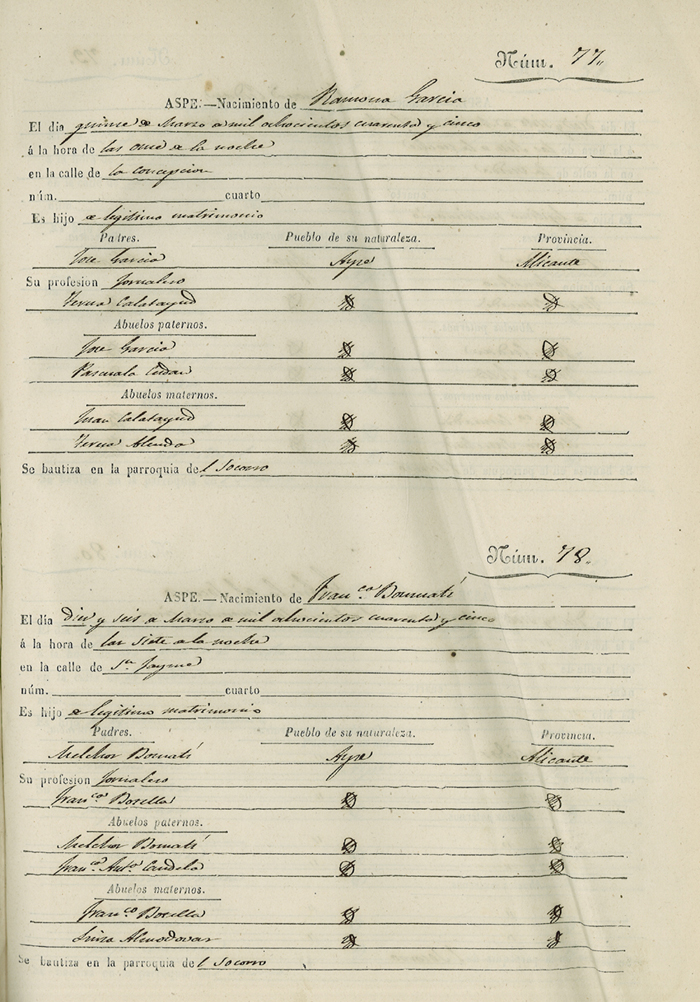 Núm. 77.
ASPE.—Nacimiento de Ramona Garcia
El dia quince de Marzo de mil ochocientos cuarenta y cinco
á la hora de las once de la noche
en la calle de la concepcion
núm. cuarto
Es hijo de legitimo matrimonio
Padres. Pueblo de su naturaleza. Provincia.
Jose Garcia Aspe Alicante
Su profesion Jornalero
Teresa Calatayud
Abuelos paternos.
Jose Garcia
Pascuala Cerdan
Abuelos maternos.
Juan Calatayud
Teresa
Se bautiza en la parroquia del Socorro
Núm. 78.
ASPE.—Nacimiento de Fran.co Bonmatí
El dia diez y seis de Marzo de mil ochocientos cuarenta y cinco
á la hora de las siete de la noche
en la calle de Sn. Jayme
núm. cuarto
Es hijo de legitimo matrimonio
Padres. Pueblo de su naturaleza. Provincia.
Melchor Bonmatí Aspe Alicante
Su profesion Jornalero
Fran.ca Botella
Abuelos paternos.
Melchor Bonmatí
Fran.ca Ant.a Candela
Abuelos maternos.
Fran.co Botella
Luisa Almodovar
Se bautiza en la parroquia del Socorro